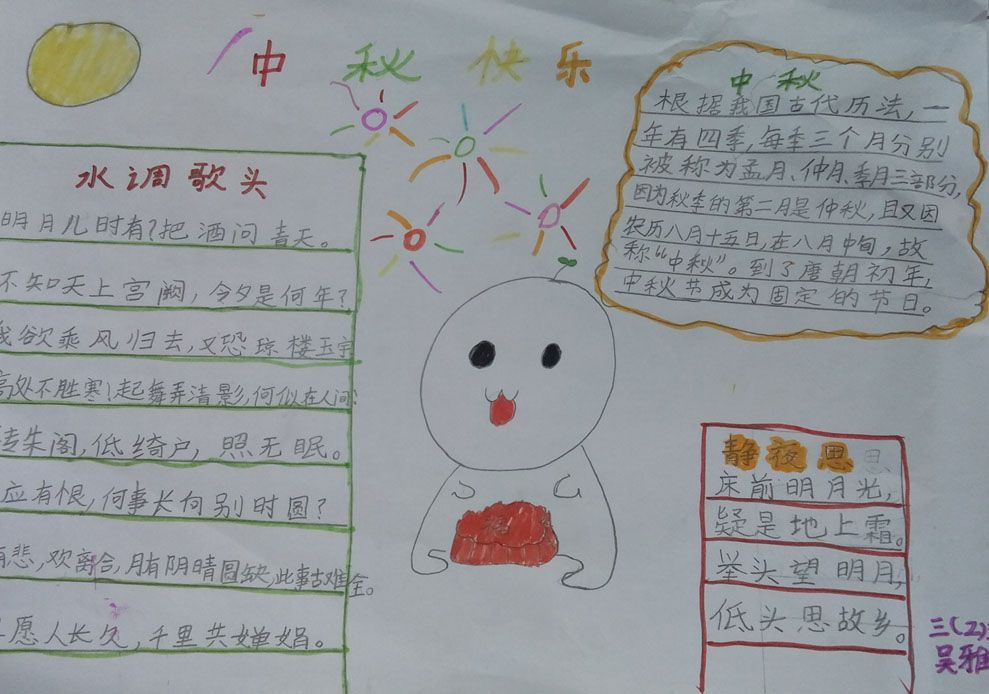 中秋快乐
水调歌头
明月儿时有?把酒问青天。
不知天上宫阙,今夕是何年?
我欲乘风归去,又恐琼楼玉宇
高处不胜寒!起舞弄清影,何似在人间?
转朱阁,低绮户,照无眠。
应有恨,何事长向别时圆?
有悲,欢离合,月有阴晴圆缺,此事古难全。
愿人长久,千里共婵娟。
中秋
根据我国古代历法,一
年有四季,每季三个月分别
被称为孟月、仲月、季月三部分,
因为秋季的第二月是仲秋,且又因
农历八月十五日,在八月中旬,故
称“中秋”。到了唐朝初年,
中秋节成为固定的节日。
静夜思思
床前明月光,
疑是地上霜。
举头望明月,
低头思故乡。
三(2)
吴雅